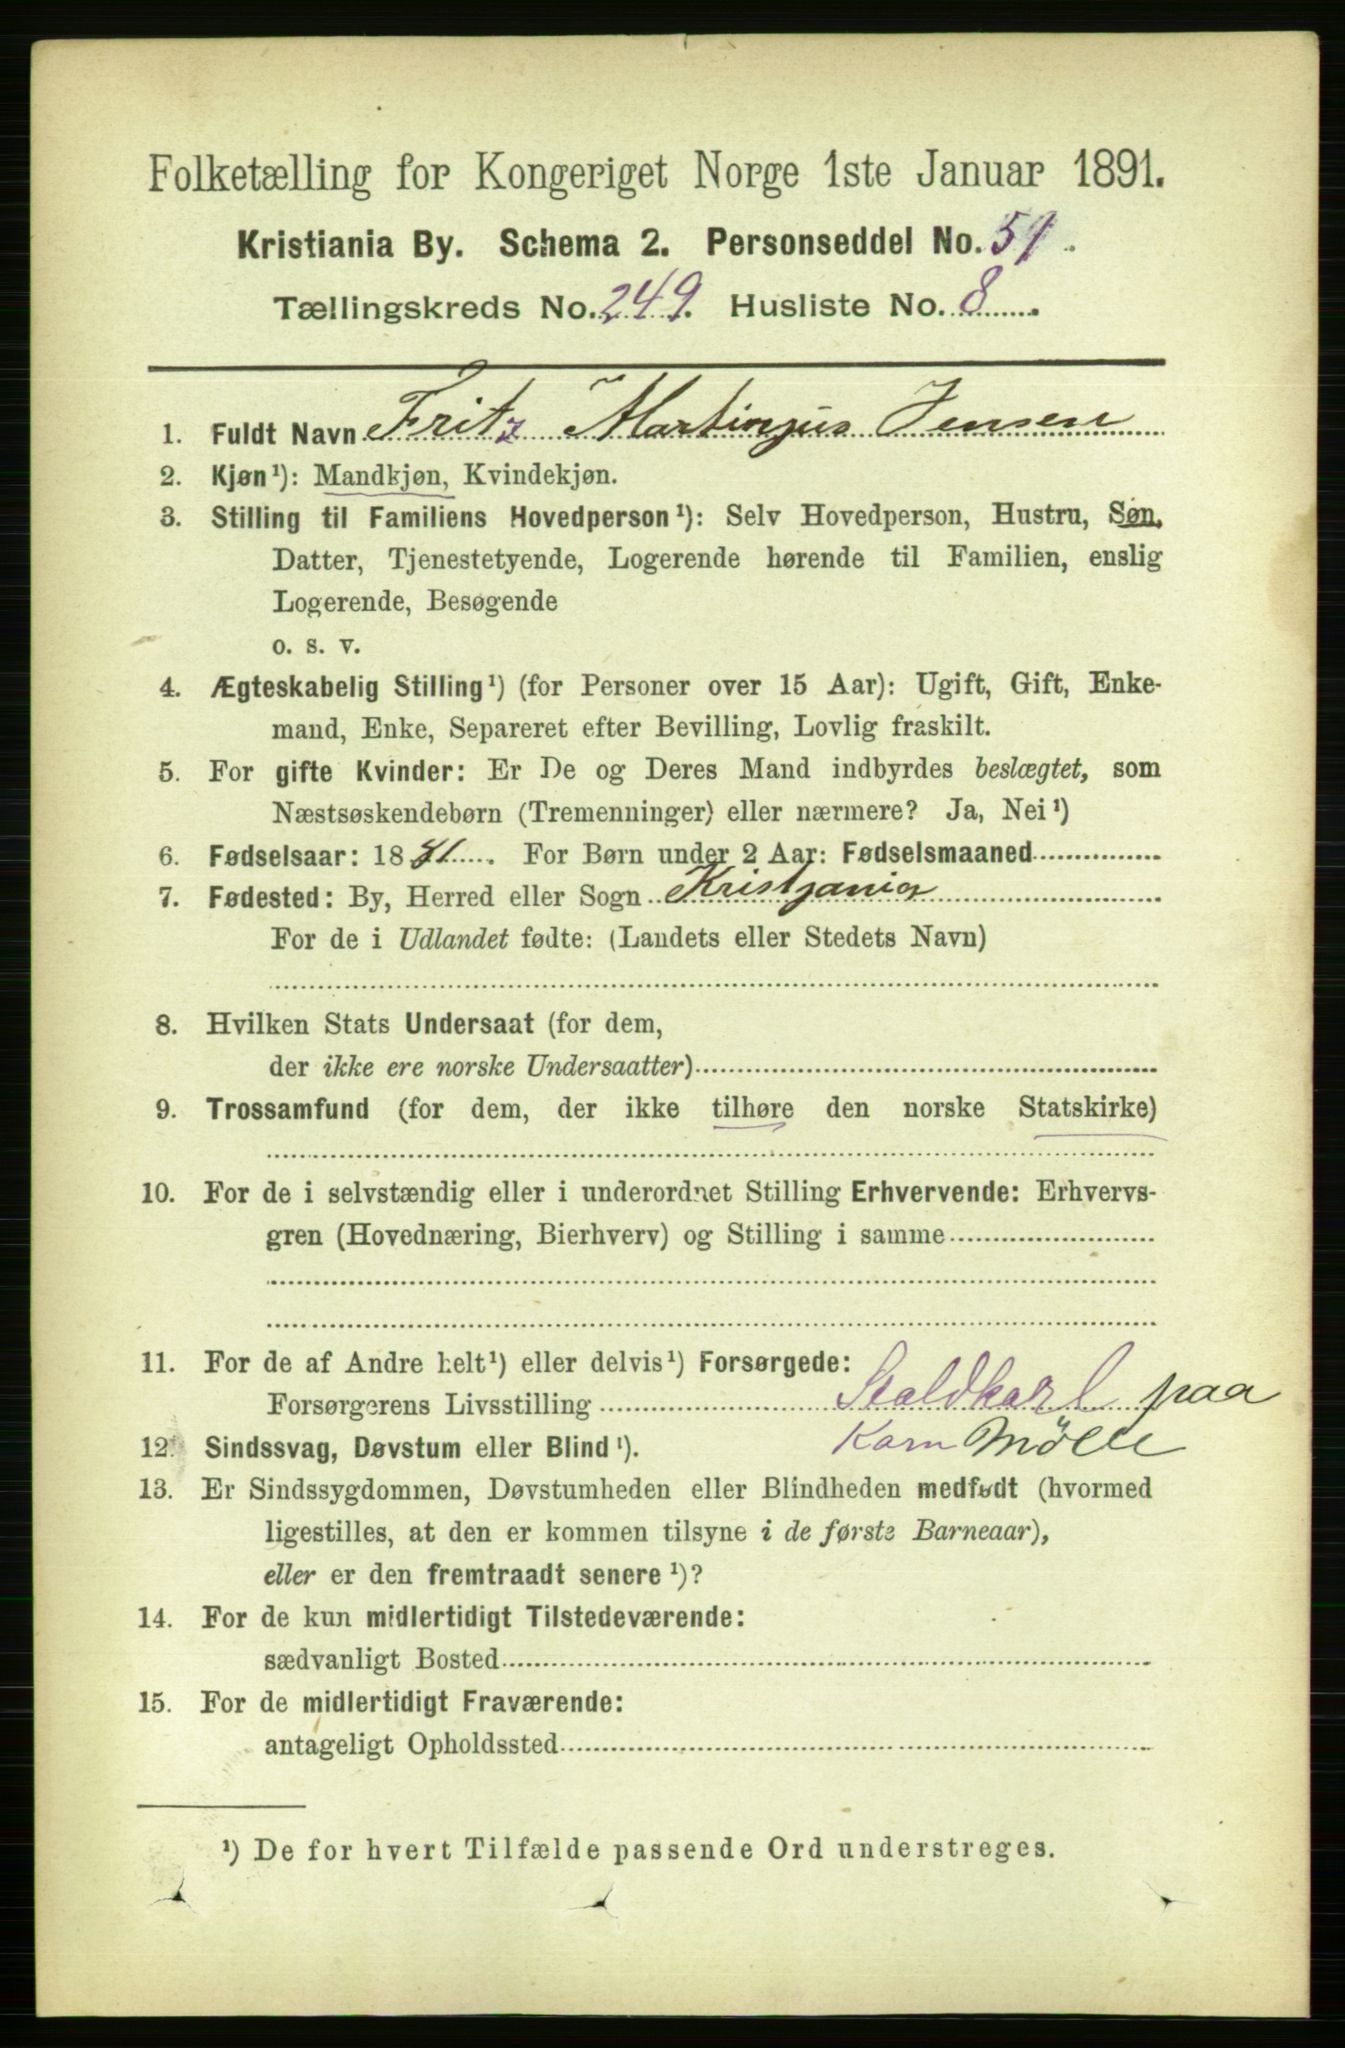 Folketælling for Kongeriget Norge 1ste Januar 1891.
Kristiania By. Schema 2. Personseddel No. 51.
Tællingskreds No. 249. Husliste No. 8.
1. Fuldt Navn Fritz Martinjus Jensen
2. Kjøn¹): Mandkjøn, Kvindekjøn.
3. Stilling til Familiens Hovedperson¹): Selv Hovedperson, Hustru, Søn,
Datter, Tjenestetyende, Logerende hørende til Familien, enslig
Logerende, Besøgende
o. s. v.
4. Ægteskabelig Stilling¹) (for Personer over 15 Aar): Ugift, Gift, Enke-
mand, Enke, Separeret efter Bevilling, Lovlig fraskilt.
5. For gifte Kvinder: Er De og Deres Mand indbyrdes beslægtet, som
Næstsøskendebørn (Tremenninger) eller nærmere? Ja, Nei¹)
6. Fødselsaar: 1881. For Børn under 2 Aar: Fødselsmaaned
7. Fødested: By, Herred eller Sogn Kristjania
For de i Udlandet fødte: (Landets eller Stedets Navn)
8. Hvilken Stats Undersaat (for dem,
der ikke ere norske Undersaatter)
9. Trossamfund (for dem, der ikke tilhøre den norske Statskirke)
10. For de i selvstændig eller i underordnet Stilling Erhvervende: Erhvervs-
gren (Hovednæring, Bierhverv) og Stilling i samme
11. For de af Andre helt¹) eller delvis¹) Forsørgede:
Forsørgerens Livsstilling Staldkarl paa
Korn Mølle
12. Sindssvag, Døvstum eller Blind¹).
13. Er Sindssygdommen, Døvstumheden eller Blindheden medfødt (hvormed
ligestilles, at den er kommen tilsyne i de første Barneaar),
eller er den fremtraadt senere¹)?
14. For de kun midlertidigt Tilstedeværende:
sædvanligt Bosted
15. For de midlertidigt Fraværende:
antageligt Opholdssted
¹) De for hvert Tilfælde passende Ord understreges.